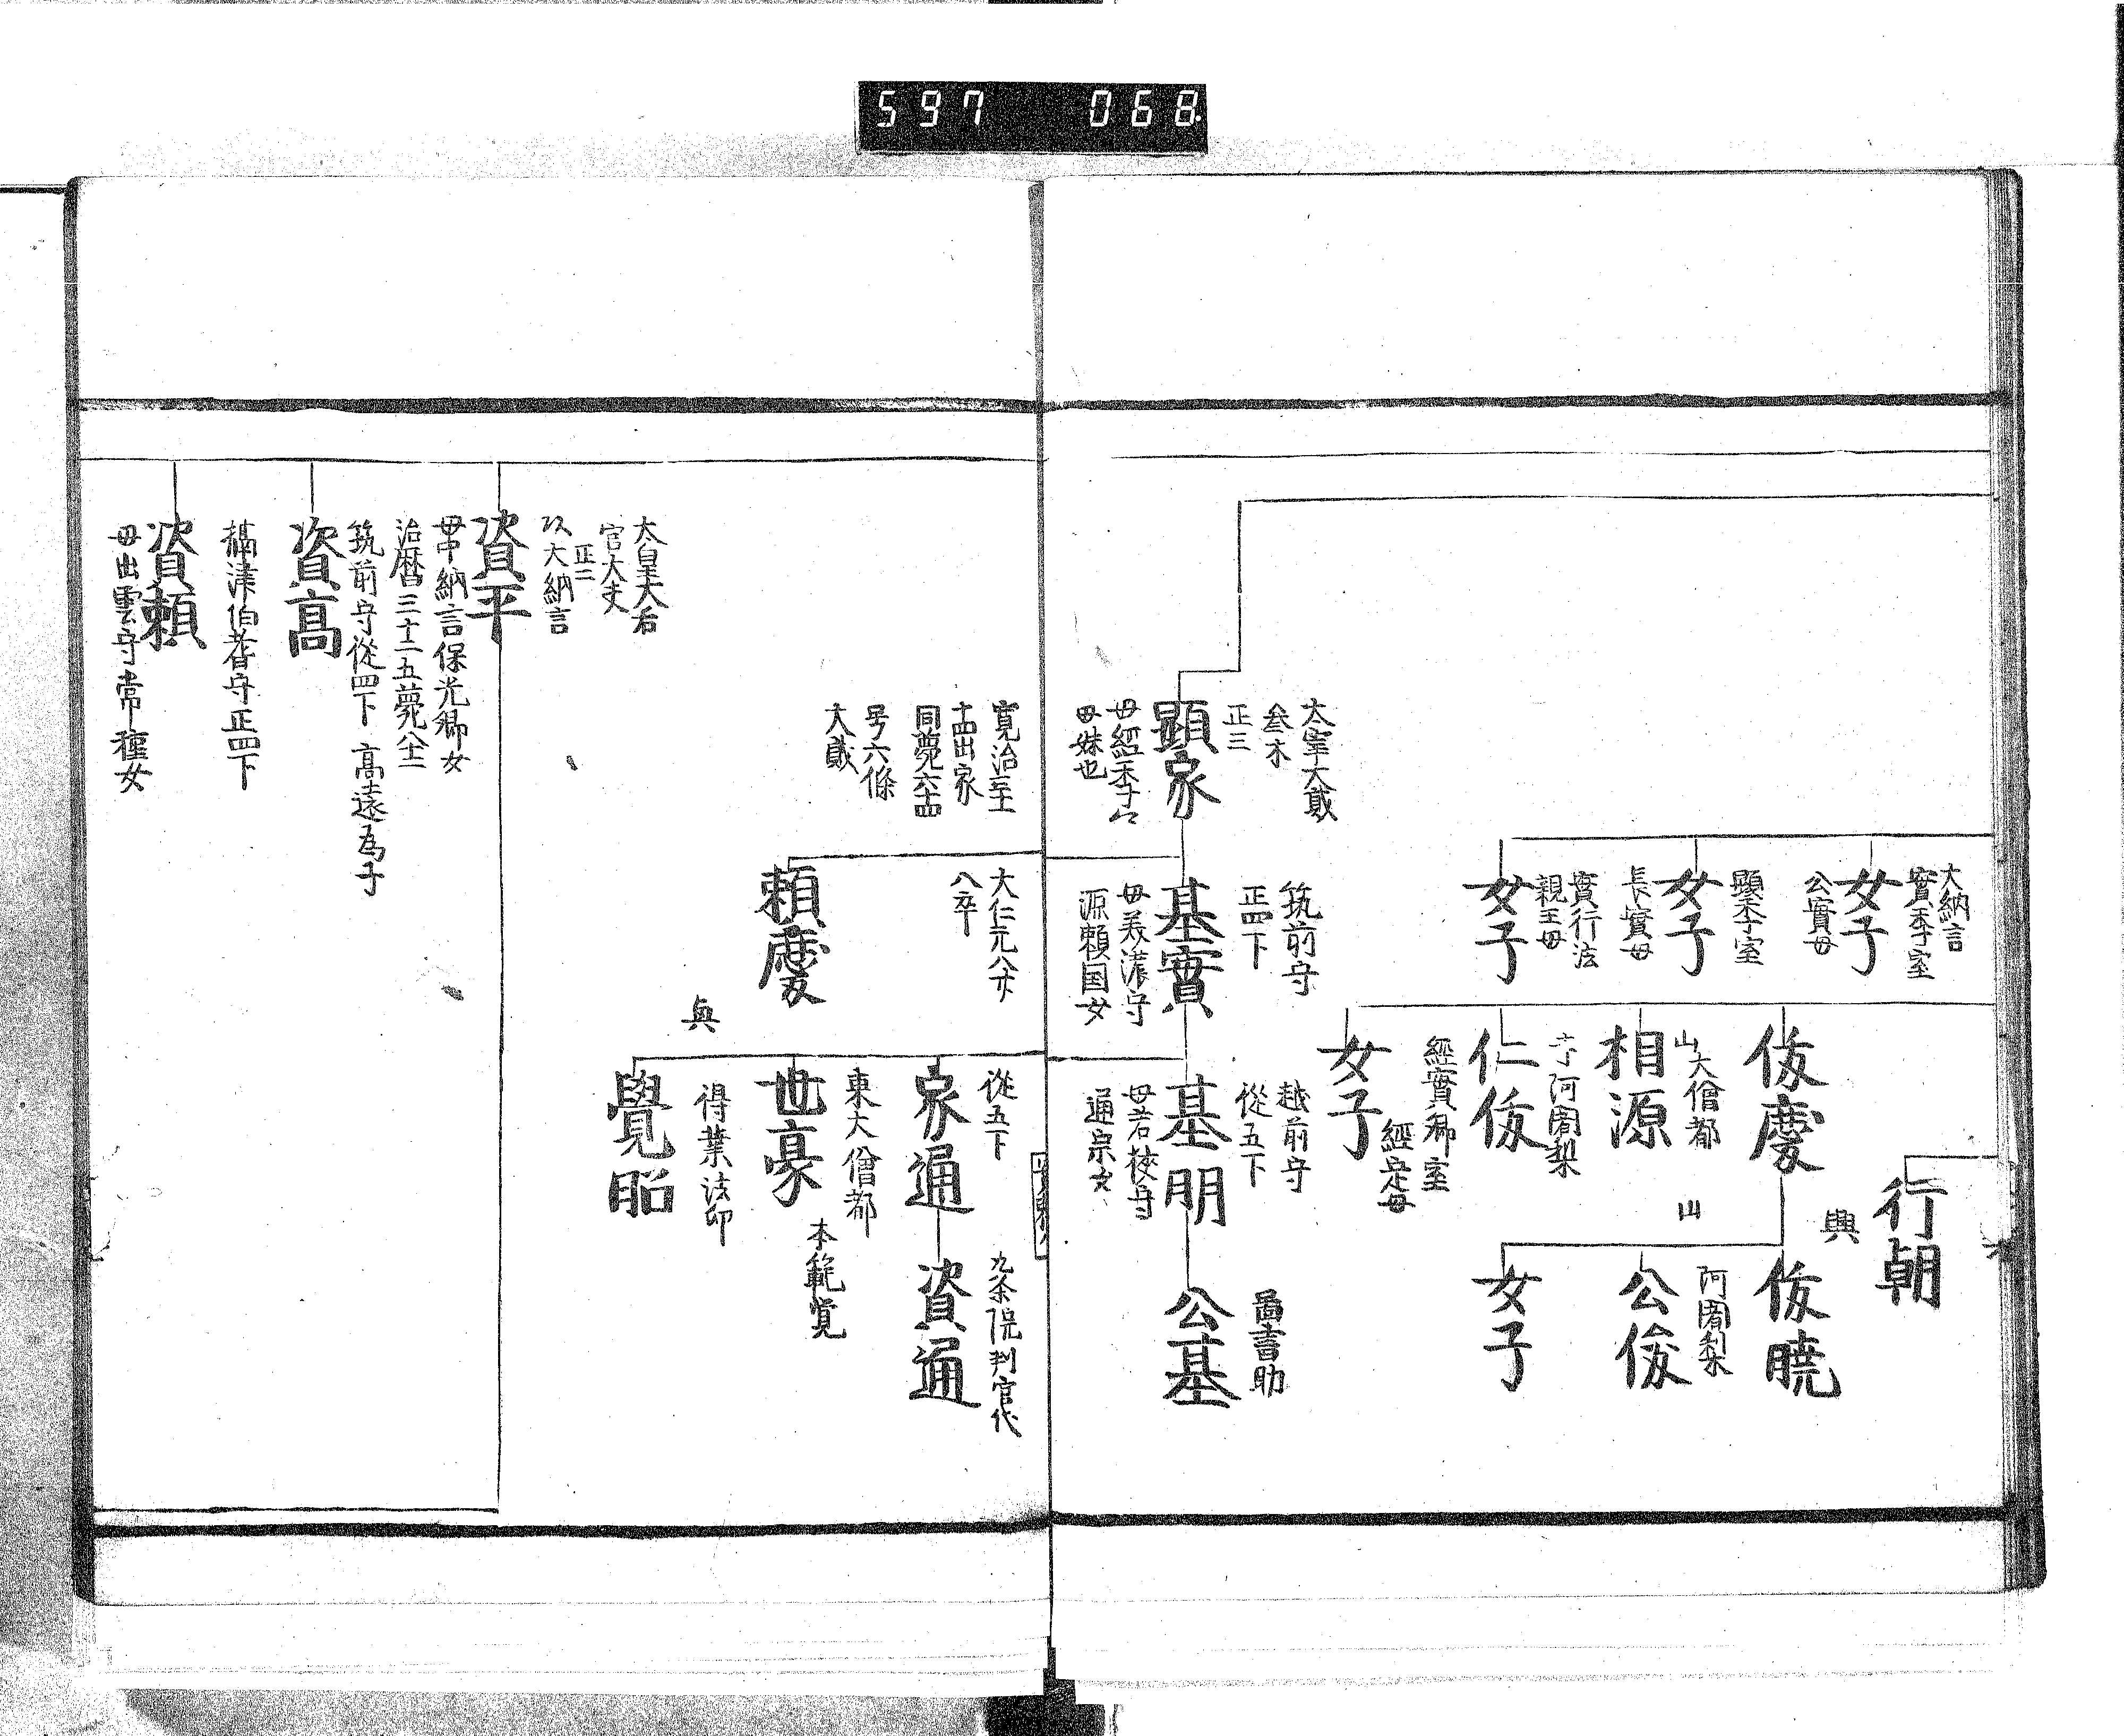 597 068
大納言
實季室
女子
公實母
顯季室
女子
長實母
實行法
親王母
女子
行朝
興
俊慶
山大僧都
相源
寺阿闍梨
仁俊
經實卿室
女子
經定母
俊曉
山
阿闍梨
公俊
女子
太宰大貳
叁木
正三
顯家
母經季十々
母妹也
筑前守
正四下
基實
母美濃守
源頼国女
越前守
從五下
基明
母若狹守
通宗女
圖書助
公基
寛治三十二
十四出家
同薨六十四
号六條
大貳
大仁元八廿
八卒
頼慶
從五下
家通
九条院判官代
資通
東大僧都
世豪
本範覚
興
得業法印
覺昭
太皇大后
宮大夫
正二
权大納言
資平
母中納言保光卿女
治暦三十二五薨八十二
筑前守從四下 高遠為子
資高
攝津伯耆守正四下
資頼
母出雲守常種女